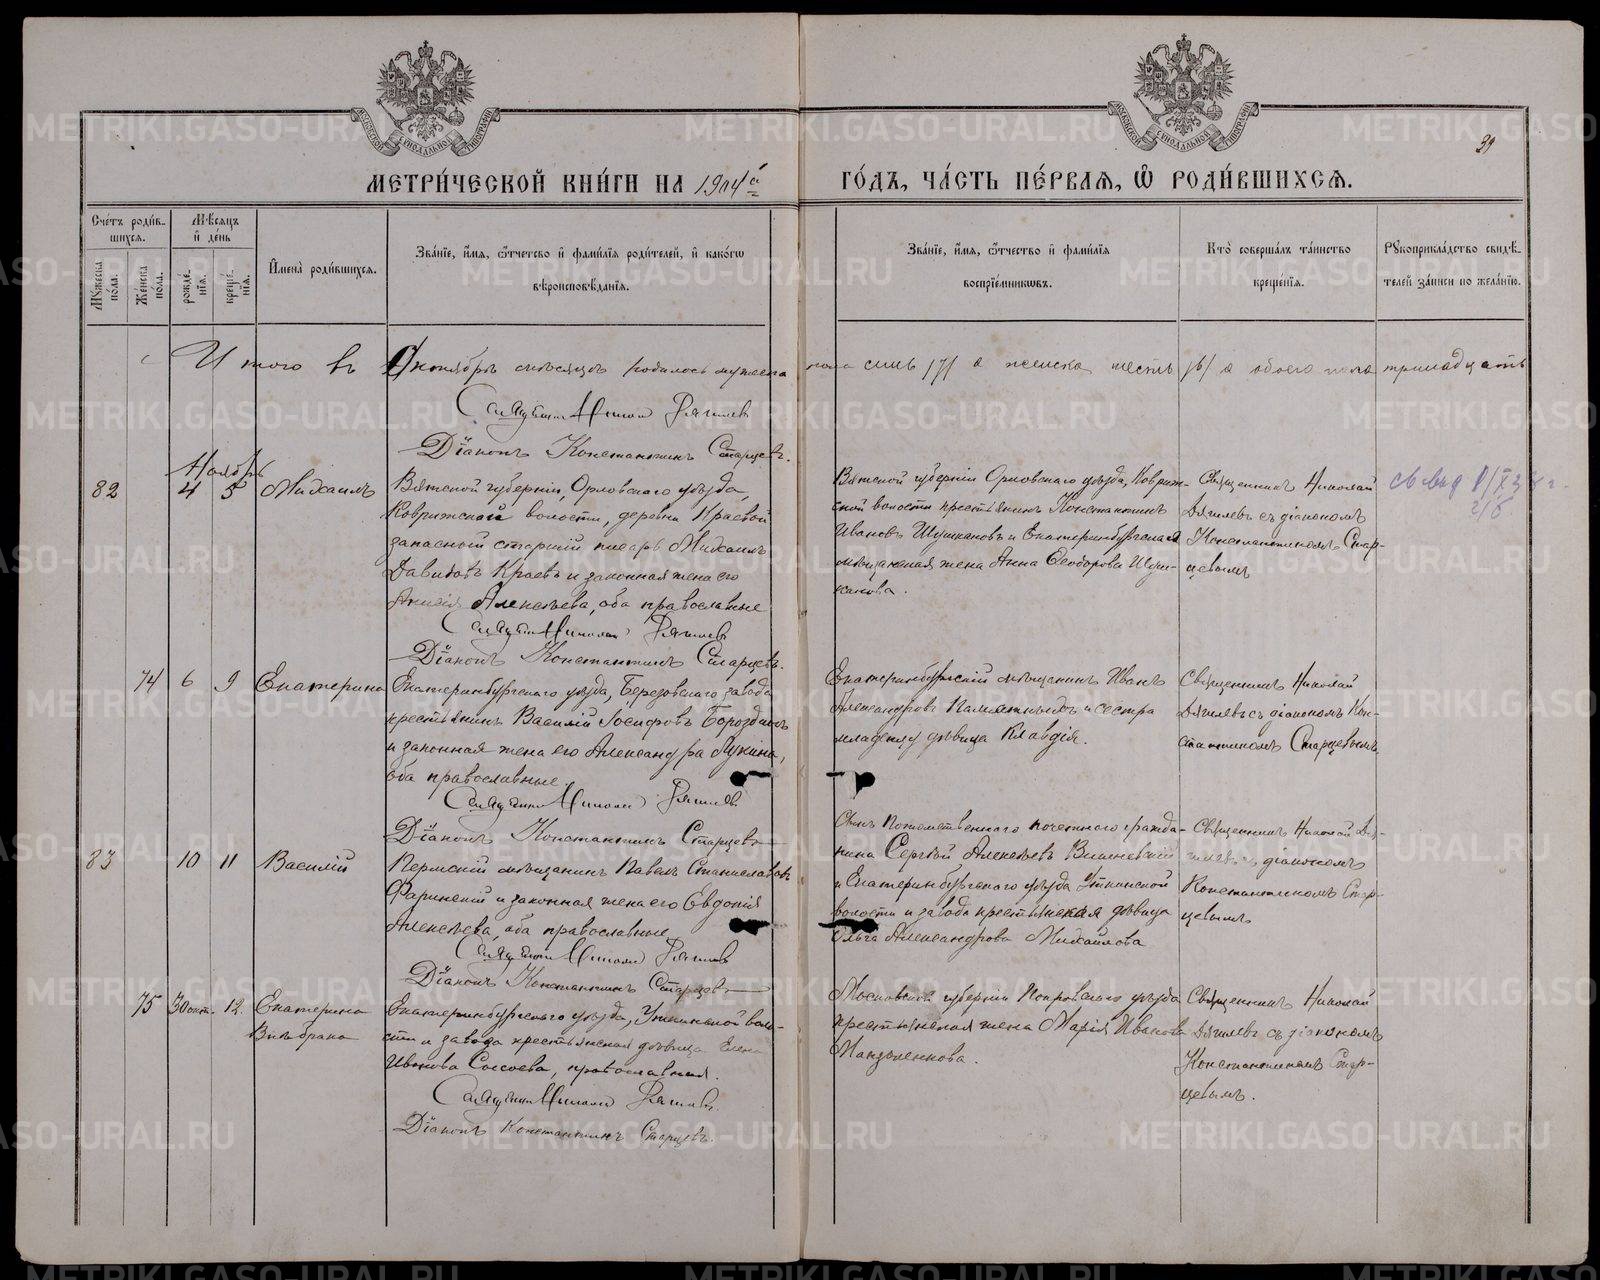 МЕТРИ́ЧЕСКОЙ КНИ́ГИ НА 1904й
ГО́ДЪ, ЧА́СТЬ ПЕ́РВАЯ, Ѡ РОДИ́ВШИХСЯ.
39
Сче́тъ роди́в-
шихся.
Мѣ́сяцъ
и де́нь
Му́жеска
по́ла.
Же́нска
по́ла.
рожде́-
нїя.
креще́-
нїя.
Имена̀ роди́вшихся.
Зва́нїе, и́мя, ѻ́тчетсво и фами́лїя роди́телей, и како́гѡ
вѣроисповѣ́данїя.
Зва́нїе, и́мя, ѻ́тчество и фами́лїя
воспрїе́мникѡвъ.
Кто̀ соверша́лъ та́инство
креще́нїя.
Рꙋкоприкла́дство свидѣ́-
телей за́писи по жела́нїю.
Итого въ Октябрѣ мѣсяцѣ родилось мужеска пола семь /7/ а женска шесть /6/ а обоего пола тринадцать
Священникъ Николай Дягилевъ
Діаконъ Константинъ Старцевъ.
Ноябрь
82
4
5
Михаилъ
Вятской губерніи, Орловского уѣзда,
Коврижской волости, деревни Краевой
запасный старшій писарь Михаилъ
Давидовъ Краевъ и законная жена его
Алексѣева, оба православные
Священникъ Николай Дягилевъ
Діаконъ Константинъ Старцевъ.
Вятской губерніи Орловского уѣзда, Коврижс-
ской волости крестьянинъ Константинъ
Ивановъ Шушкановъ и Екатеринбургская
мѣщанская жена Анна Ѳеодорова Шуш-
канова.
Священникъ Николай
Дягилевъ съ діакономъ
Константиномъ Стар-
цевымъ
74
6
9
Екатерина
Екатеринбургского уѣзда, Березовского завода
крестьянинъ Василій Іосифовъ Бороздинъ
и законная жена его Александра Лукина,
оба православные.
Священникъ Николай Дягилевъ
Діаконъ Константинъ Старцевъ
Екатеринбургскій мѣщанинъ Иванъ
Александровъ и сестра
младенцу дѣвица Клавдія.
Священникъ Николай
Дягилевъ съ діакономъ Кон-
стантиномъ Старцевымъ
83
10
11
Василій
Пермскій мѣщанинъ Павелъ Станиславовъ
и законная жена его Евдокія
Алексѣева, оба православные
Священникъ Николай Дягилевъ
Діаконъ Константинъ Старцевъ
Сынъ Потомственного почетного гражда-
нина Сергѣй Алексѣевъ Вишневскій
и Екатеринбургского уѣзда Уткинской
волости и завода крестьянская дѣвица
Ольга Александрова Михайлова
Священникъ Николай Дя-
гилевъ съ діакономъ
Константиномъ Стар-
цевымъ
75
30 окт.
12
Екатерина
Внѣбрачно
Екатеринбургского уѣзда, Уткинской воло-
сти и завода крестьянская дѣвица Елена
Иванова Сысоева, православная.
Священникъ Николай Дягилевъ.
Діаконъ Константинъ Старцевъ.
Московской губерніи уѣзда
крестьянская жена Марія Иванова
Священникъ Николай
Дягилевъ съ діакономъ
Константиномъ Стар-
цевымъ.
METRIKI.GASO-URAL.RU